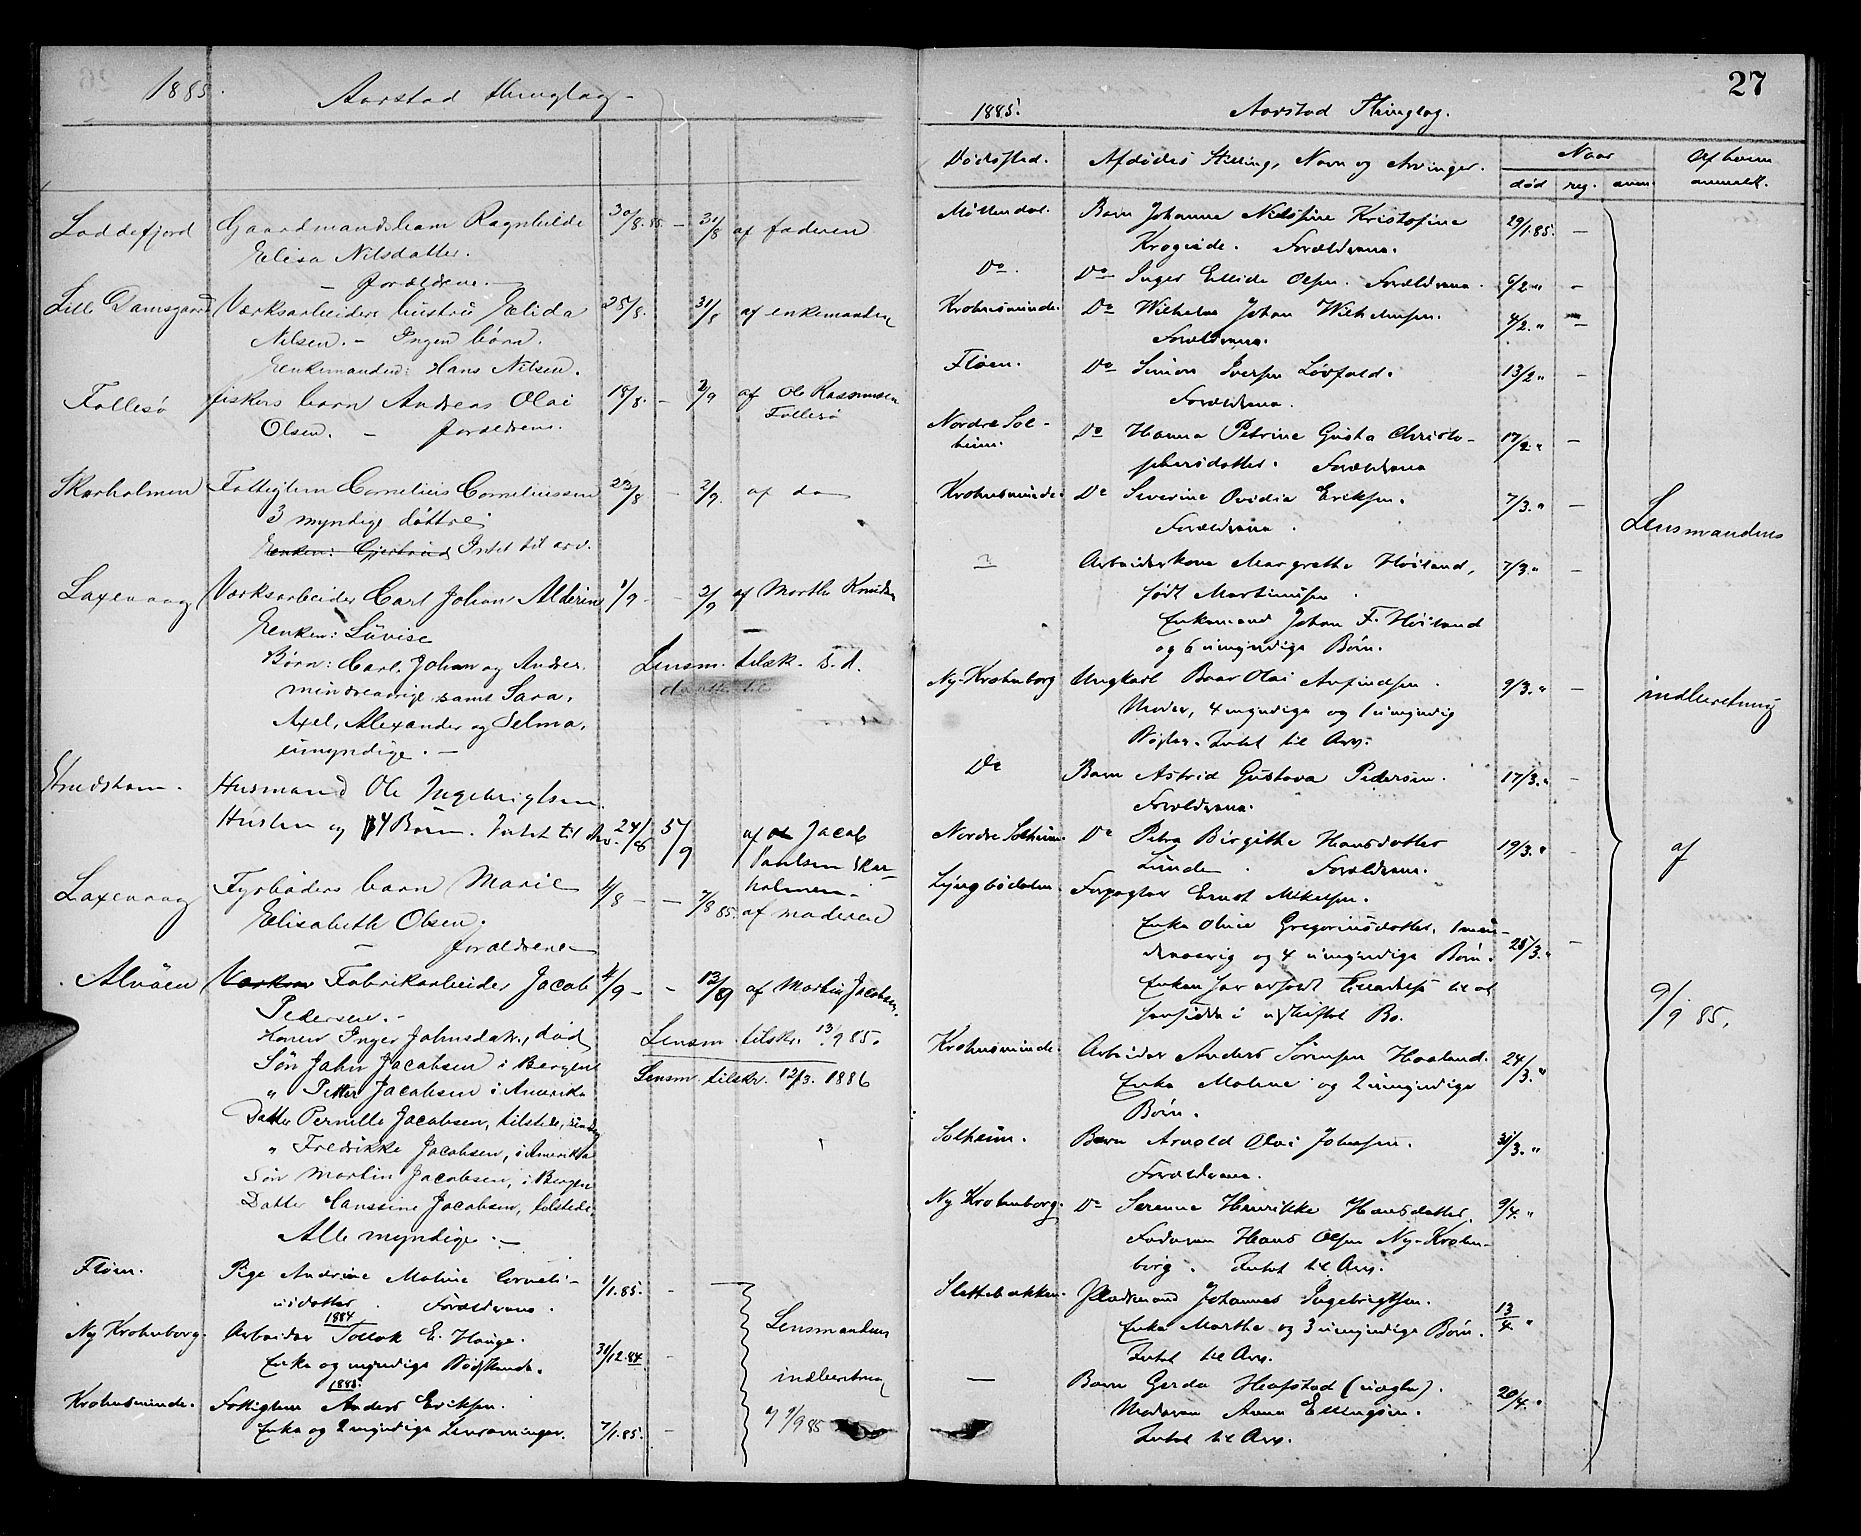 1885.
Aarstad thinglag
Loddefjord Gaardmandsbarn Ragnhilde 30/8.85. - 31/8 af faderen
Elisa Nilsdatter.
- forældrene.-
Lille Damsgaard Værksarbeiders hustru Elida 25/8. 31/8 af enkemanden
Nilsen. - Ingen börn.
Enkemanden: Hans Nilsen.
Follesö fiskers barn Andreas Olai 18/8. - 2/9 af Ole Rasmusen
Olsen. - forældrene. Follesö
Skarholmen Fattiglem Cornelius Corneliussen 23/8 - 2/9. af do
3 myndige döttre
Enken: Gjertrud Intet til arv.
Laxevaag Værksarbeider Carl Johan Alderin 1/9 - - 2/9 af Marthe Knudsen
Enken: Lüvise
Börn: Carl Johan og Anders Lensm. tilsk. s. d.
mindreaarige samt Sara,
Axel, Alexander og Selma,
umyndige. -
Husmand Ole Ingebrigtsen
Hustru og 4 Börn. Intet til Arv. 24/8 5/9 af Jacob
Paulsen Skar-
holmen
Laxevaag Fyrböders barn Marie 4/8 - - 7/8 85. af moderen
Elisabeth Olsen.
- forældrene
Alvöen Fabrikarbeider Jacob 4/9 - - 13/9 af Martin Jacobsen
Pedersen. -
Konen Inger Johnsdatr, död Lensm. tilskr. 13/9 85.
Sön John Jacobsen i Bergen Lensm. tilskr. 12/3. 1886
„ Petter Jacobsen i Amerika
Datter Pernille Jacobsen, tilstede,
„ Fredrikke Jacobsen, i Amerika
Sön Martin Jacobsen, i Bergen
Datter Hanssine Jacobsen, tilstede,
Alle myndige. -
Flöen. Pige Andrine Maline Corneli- 1/1.85. -
usdatter. Forældrene.
1884
Ny Krohnborg. Arbeider Tollak E. Hauge. 31/12.84 - Lensmandens
Enke og myndige Södskende. indberetning
1885
Krohnsminde. Fattiglem Anders Eriksen. 7/1.85. - af 9/9 85
Enke og 2 myndige Livsarvinger.
27
1885. Aarstad Thinglag.
Dödssted. Afdödes Stilling, Navn og Arvinger. Naar Af hvem
död reg. anm. anmeldt.
Möllendal. Barn Johanna Nielsine Kristofine 29/1.85. -
Krogeide. Forældrene.
Do. Do Inger Ellide Olsen. Forældrene. 6/2 „ -
Krohnsminde. Do Wilhelm Johan Wilhelmsen. 4/2. „ -
Forældrene.
Flöen. Do Simon Iversen Lövfald. 13/2 „ -
Forældrene.
Nordre Sol-
heim. Do Hanna Petrine Gusta Christo- 17/2. „ -
phersdatter. Forældrene
Krohnsminde. Do Severine Ovidia Eriksen. 7/3. „ - Lensmandens
Forældrene.
? Arbeiderkone Margrethe Höiland, 7/3. „ -
födt Martinusen.
Enkemand Johan F. Höiland
og 6 umyndige Börn.
Ny-Krohnborg Ungkarl Olai Arfindsen. 9/3. „ - indberetning
Moder, 4 myndige og 1 umyndig
Söster. Intet til Arv.
Do Barn Astrid Gustava Pedersen. 17/3. „ -
Forældrene.
Nordre Solheim. Do Petra Birgithe Hansdatter 19/3. „ - af
Lunde. Forældrene.
Lyngbödalen. Forpagter Ernst Mikelsen.
Enke Oline Gregoriusdatter, 1 min- 25/3. „ -
dreaarig og 4 umyndige Börn.
Enken har til at 9/9 85.
hensidde i uskiftet Bo.
Krohnsminde. Arbeider Anders Sörensen Haaland. 24/3. „
Enke Maline og 2 umyndige
Börn.
Solheim. Barn Arnold Olai Johnsen. 31/3. „
Forældrene.
Ny Krohnborg. Do Serenna Henrikke Hansdatter. 9/4. „
Faderen Hans Olsen Ny-Krohn-
borg. Intet til Arv.
Slettebakken. Pladsmand Johannes Ingebrigtsen. 13/4 „
Enke Marthe og 3 umyndige Börn.
Intet til Arv.
- Barn Gerda Hafstad (uægte). 20/4. „
Moderen Anna Ellingsen.
Intet til Arv.